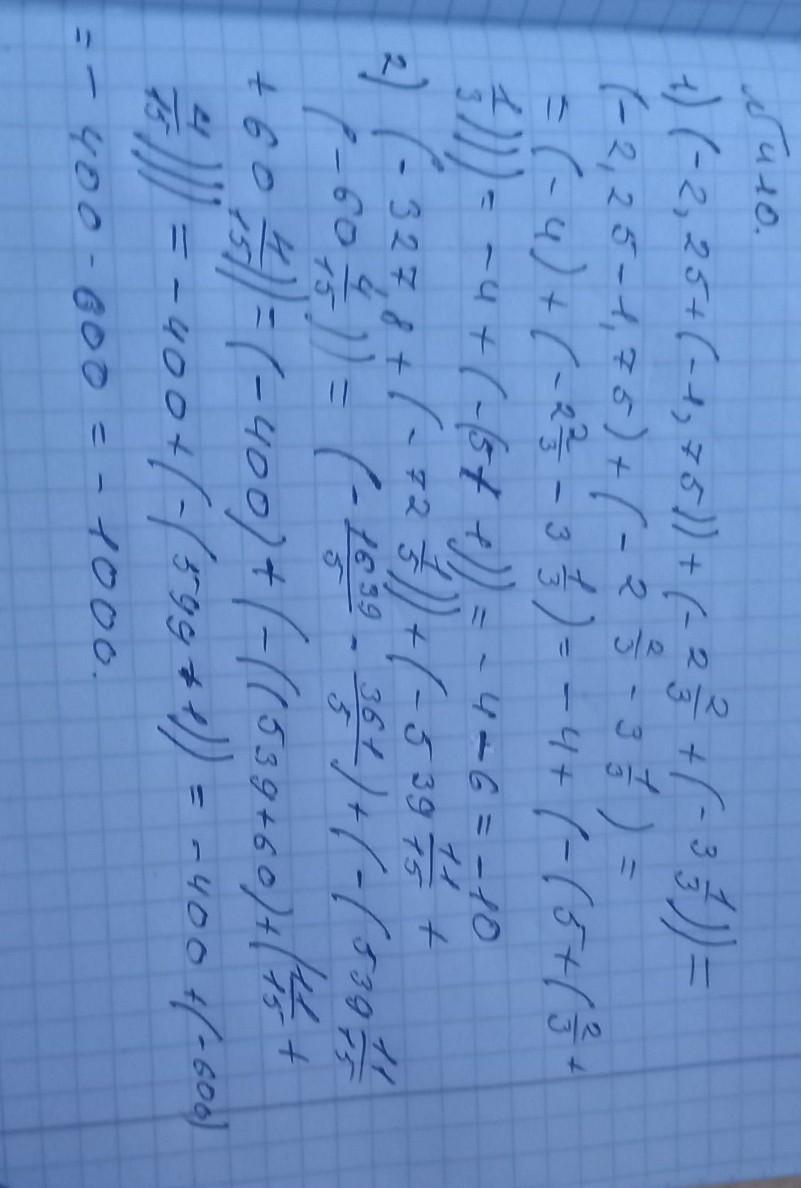 № 410.
1) (-2,25+(-1,75))+(-2 2/3+(-3 1/3))=
(-2,25-1,75)+(-2 2/3-3 1/3)=
=(-4)+(-2 2/3-3 1/3)=-4+(-(5+(2/3+
1/3)))=-4+(-(5+1))=-4-6=-10
2) (-327,8+(-72 1/5))+(-539 11/15+
(-60 4/15))=(-1639/5-361/5)+(-(539 11/15
+60 4/15))=(-400)+(-((539+60)+(11/15+
4/15)))=-400+(-(599+1))=-400+(-600)
=-400-600=-1000.